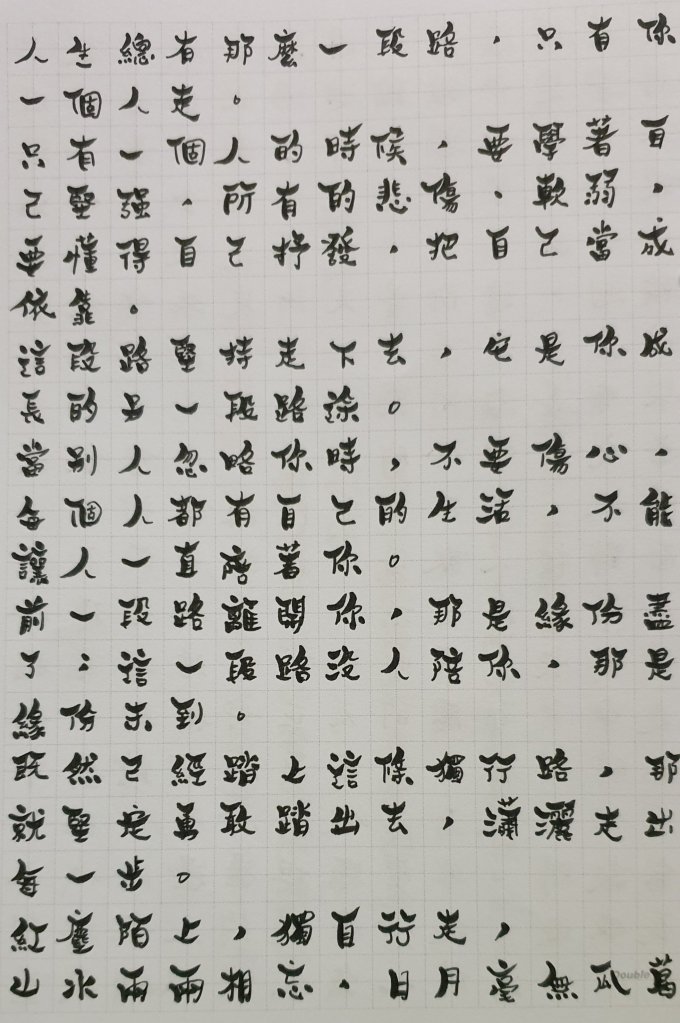 人生總有那麼一段路，只有你
一個人走。
只有一個人的時候，要學著自
己堅强，所有的悲傷、軟弱，
要懂得自己抒發，把自己當成
依靠。
這段路堅持走下去，它是你成
長的另一段路途。
當別人忽略你時，不要傷心，
每個人都有自己的生活，不能
讓人一直陪著你。
前一段路離開你，那是緣份盡
了；這一段路沒人陪你，那是
緣份未到。
既然已經踏上這條獨行路，那
就堅定勇敢踏出去，瀟灑走出
每一步。
紅塵陌上，獨自行走，
山水兩兩相忘，日月毫無瓜葛